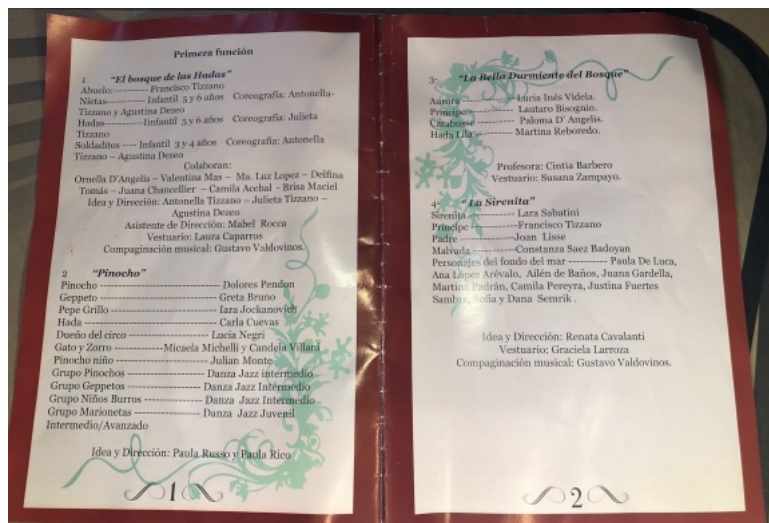 Primera función
1 "El bosque de las Hadas"
Abuelo:---------- Francisco Tizzano
Nietas----------- Infantil 5 y 6 años Coreografía: Antonella-
Tizzano y Agustina Dezeo
Hadas-----------Iinfantil 5 y 6 años Coreografía: Julieta
Tizzano
Soldaditos ---- Infantil 3 y 4 años Coreografía: Antonella
Tizzano – Agustina Dezeo
Colaboran:
Ornella D'Angelis – Valentina Mas – Ma. Luz Lopez – Delfina
Tomás – Juana Chancellier – Camila Acebal - Brisa Maciel
Idea y Dirección: Antonella Tizzano – Julieta Tizzano –
Agustina Dezeo
Asistente de Dirección: Mabel Rocca
Vestuario: Laura Caparros
Compaginación musical: Gustavo Valdovinos.
2 "Pinocho"
Pinocho ------------------------------ Dolores Pendon
Geppeto ------------------------------ Greta Bruno
Pepe Grillo --------------------------- Iara Jockanovich
Hada --------------------------------- Carla Cuevas
Dueño del circo ---------------------- Lucía Negri
Gato y Zorro -------------Micaela Michelli y Candela Villani
Pinocho niño ------------------------- Julian Monte
Grupo Pinochos ---------------- Danza Jazz intermedio
Grupo Geppetos ---------------- Danza Jazz Intermedio
Grupo Niños Burros ------------- Danza Jazz Intermedio
Grupo Marionetas --------------- Danza Jazz Juvenil
Intermedio/Avanzado
Idea y Dirección: Paula Russo y Paula Rico
1
3- "La Bella Durmiente del Bosque"
Aurora --------------Lucía Inés Videla.
Príncipe ------------ Lautaro Bisognio.
Carabosse ---------- Paloma D' Angelis.
Hada Lila ---------- Martina Reboredo.
Profesora: Cintia Barbero
Vestuario: Susana Zampayo.
4- "La Sirenita"
Sirenita ------------ Lara Sabatini
Príncipe ------------Francisco Tizzano
Padre --------------Joan Lisse
Malvada -----------Constanza Saez Badoyan
Personajes del fondo del mar ---------- Paula De Luca,
Ana López Arévalo, Ailén de Baños, Juana Gardella,
Martina Padrán, Camila Pereyra, Justina Fuertes
Sambra, Sofia y Dana Semrik .
Idea y Dirección: Renata Cavalanti
Vestuario: Graciela Larroza
Compaginación musical: Gustavo Valdovinos.
2